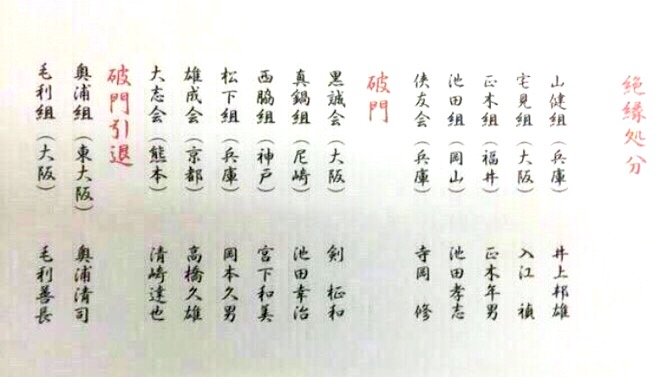 絶縁処分
山健組（兵庫） 井上邦雄
宅見組（大阪） 入江 禎
正木組（福井） 正木年男
池田組（岡山） 池田孝志
侠友会（兵庫） 寺岡 修
破門
黒誠会（大阪） 剣 柾和
真鍋組（尼崎） 池田幸治
西脇組（神戸） 宮下和美
松下組（兵庫） 岡本久男
雄成会（京都） 高橋久雄
大志会（熊本） 清崎達也
破門引退
奥浦組（東大阪） 奥浦清司
毛利組（大阪） 毛利善長